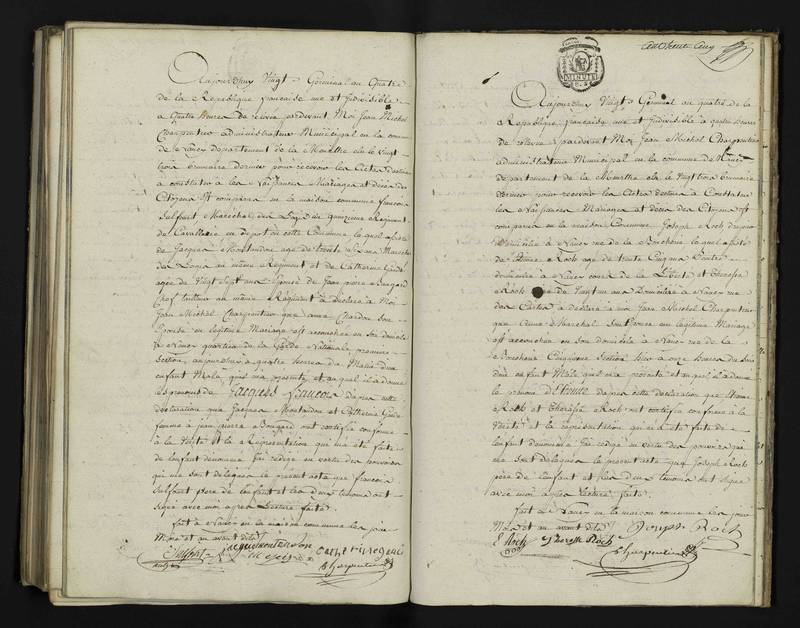 Aujourd'huy Vingt Germinal an Quatre
de la Republique francaise une et Indivisible
a Quatre heures de relevée pardevant Moi Jean Michel
Charpentier administrateur Municipal en la commune
de Nancy departement de la Meurthe elu le vingt
trois brumaire dernier pour recevoir les Actes destinés
a constater les Naissances Mariages et décès des
Citoyens est comparu en la maison commune francois
Sulfourt Marechal des Logis du quinzieme Regiment
de Cavallerie en depot en cette Commune lequel assisté
de Jacques Montandon age de trente ans Marechal
des Logis au même Regiment et de Catherine Gude
agée de Vingt Sept ans Epouse de Jean pierre
Chef tailleur au même Regiment a declaré à Moi
Jean Michel Charpentier que anne Chardon son
Epouse en legitime Mariage est accouchée en son domicile
à Nancy quartier de la Garde Nationale premiere
Section, aujourd'huy à quatre heures du Matin d'un
enfant Male qu'il m'a presenté et auquel il a donné
les prenoms de Jacques francois d'apres cette
declaration que Jacques Montandon et Catherine Gude
femme à jean pierre ont certifié conforme
à la Verité et la Representation qui m'a été faite
de l'enfant denommé J'ai redigé en vertu des pouvoirs
qui me sont délégués le present acte que francois
Sulfourt pere de l'enfant et les deux temoins ont
signé avec moi apres Lecture faite.
fait à Nancy en la maison commune les jour
Mois et an avant dits
Sulfourt jacque montandon catherine gude
Charpentier
cent trente cinq
Aujourd'huy Vingt Germinal an quatre de la
Republique francaise une et Indivisible à quatre heures
de relevée pardevant Moi Jean Michel Charpentier
administrateur Municipal en la commune de Nancy
departement de la Meurthe elu le vingt trois brumaire
dernier pour recevoir les Actes destinés à Constater
les Naissances Mariages et décès des Citoyens est
comparu en la maison Commune Joseph Roch
Domicilié à Nancy rue de la lequel assisté
de Etienne Roch agé de trente Cinq ans
domicilié à Nancy cours de la Liberté et Therese
Roch agée de Vingt un ans Domiciliée à Nancy rue
des a declaré à moi Jean Michel Charpentier
que Anne Marechal Son Epouse en legitime Mariage
est accouchée en son domicile à Nancy rue de la
Cinquieme Section hier à onze heures du Soir
d'un enfant Male qu'il m'a presenté et auquel il a donné
le prenom d'Etienne d'apres cette declaration que Etienne
Roch et Therese Roch ont certifié conforme à la
Verité et la representation qui m'a été faite de
l'enfant denommé J'ai redigé en vertu des pouvoirs qui
me sont délégués le present acte que Joseph Roch
pere de l'enfant et les deux temoins ont signé
avec moi apres lecture faite.
fait à Nancy en la maison commune les jour
Mois et an avant dits Joseph Roch
E Roch Therese Roch
Charpentier